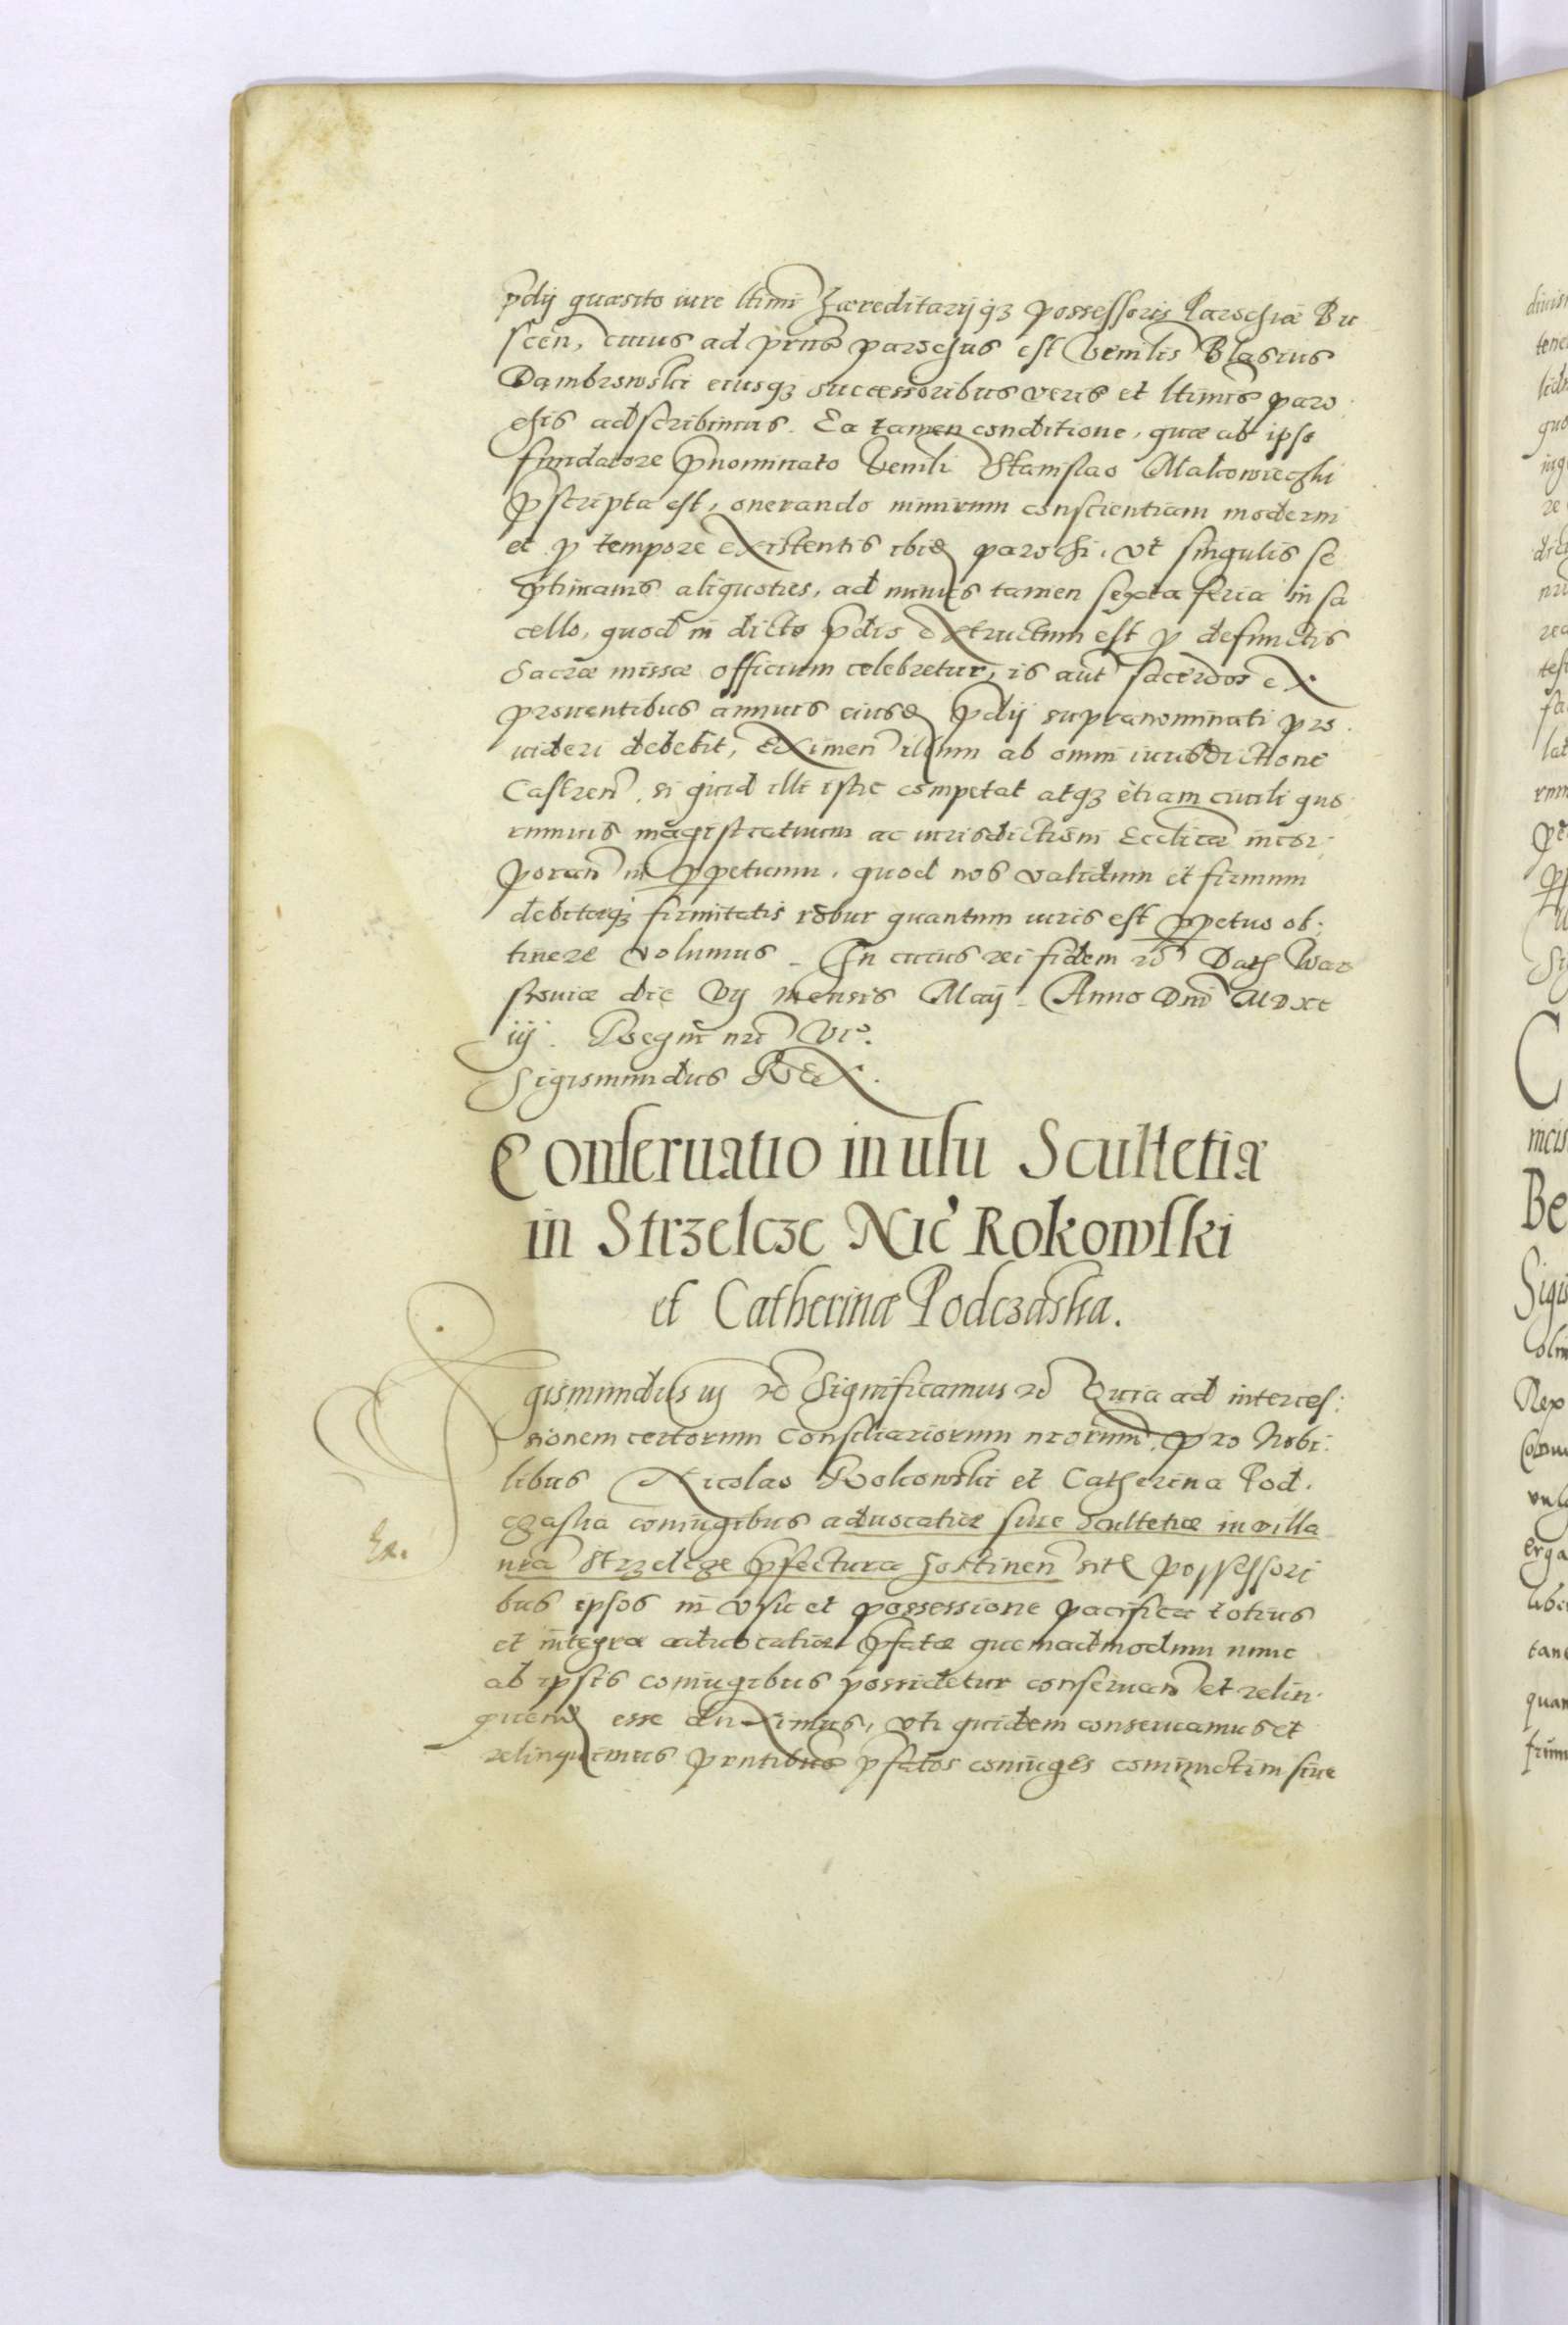 pdij quæsito iure ltimi hæreditarijqз possessoris Parochiæ Bu
scen, cuius ad prns parochus est Venilis Blasius
Dambrowski eiusqз successoribus veris et ltimis paro
chis adscribimus. Ea tamen conditione, quæ ab ipso
fundatore pnominato Venili Stanislao Makowieczki
pscripta est, onerando nimirum conscientiam moderni
et p tempore existentis ibid parochi, vt singulis se
ptimanis aliquoties, ad minus tamen sexta feria in sa
cello, quod in dicto pdio extructum est p defunctis
Sacræ missæ officium celebretur, is aut sacerdos ex
prouentibus annuis eiusd pdij supranominati pro
uideri debebit, Eximen illum ab omni iurisdictione
Castren, si quid illi istic competat atqз etiam ciuili quo
rumuis magistratuum ac iurisdictioni Ecclicæ incor;
poran in ppetuum, quod nos validum et firmum
debitæqз firmitatis robur quantum iuris est ppetuo ob;
tinere volumus. In cuius rei fidem rc Dat War
souiæ die Vij mensis Maij. Anno Dni MDXC
iij. Regni nri VI°.
Sigismundus Rex.
Conseruatio in usu Scultetiæ
in Strzelcze Nic Rokowski
et Catherinæ Podczaska.
Sigismundus iij rc Significamus rc Quia ad interces;
sionem certorum Consiliariorum nrorum, pro Nobi;
libus Nicolao Rokowski et Catherina Pod.
czaska coniugibus aduocatiæ siue Scultetiæ in villa
Ex.
nra Strzelcze pfectura Gostinen sit possessori
bus ipsos in vsu et possessione pacifica totius
et integræ aduocatiæ pfatæ quemadmodum nunc
ab ipsis coniugibus possidetur conseruan et relin.
quend esse duximus, vti quidem conseruamus et
relinquimus prntibus pfatos coniuges coniunctim siue